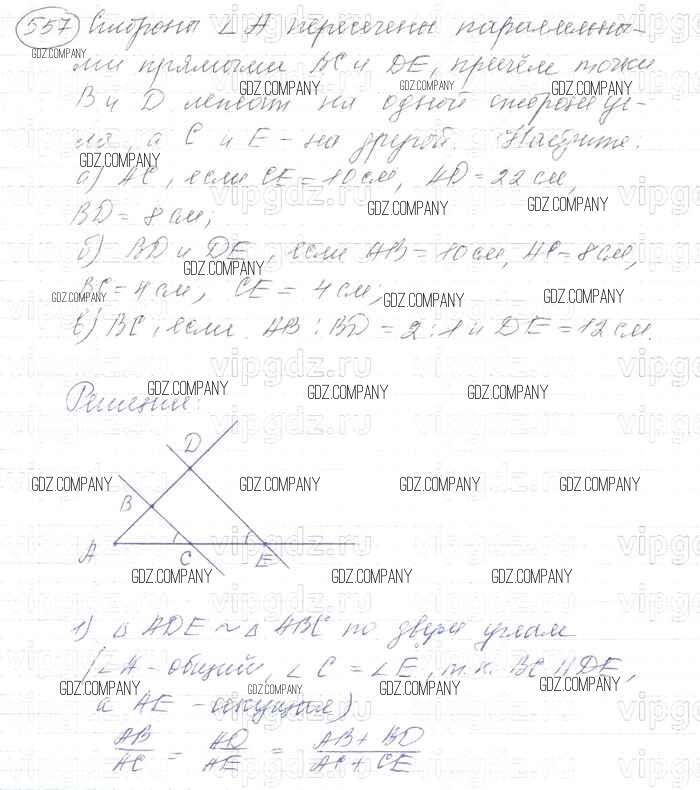 557 Стороны ∠A пересечены параллельны-
ми прямыми BC и DE, причём точки
B и D лежат на одной стороне уг-
ла, а C и E - на другой. Найдите:
а) AC, если CE = 10 см, AD = 22 см,
BD = 8 см;
б) BD и DE, если AB = 10 см, AC = 8 см,
BC = 4 см, CE = 4 см;
в) BC, если AB : BD = 2 : 1 и DE = 12 см.
Решение:
D
B
A
C
E
1) △ ADE ~ △ ABC по двум углам
(∠A - общий, ∠C = ∠E, т.к. BC || DE,
а AE - секущая)
AB/AC = AD/AE = (AB + BD)/(AC + CE)
GDZ.COMPANY
vipgdz.ru